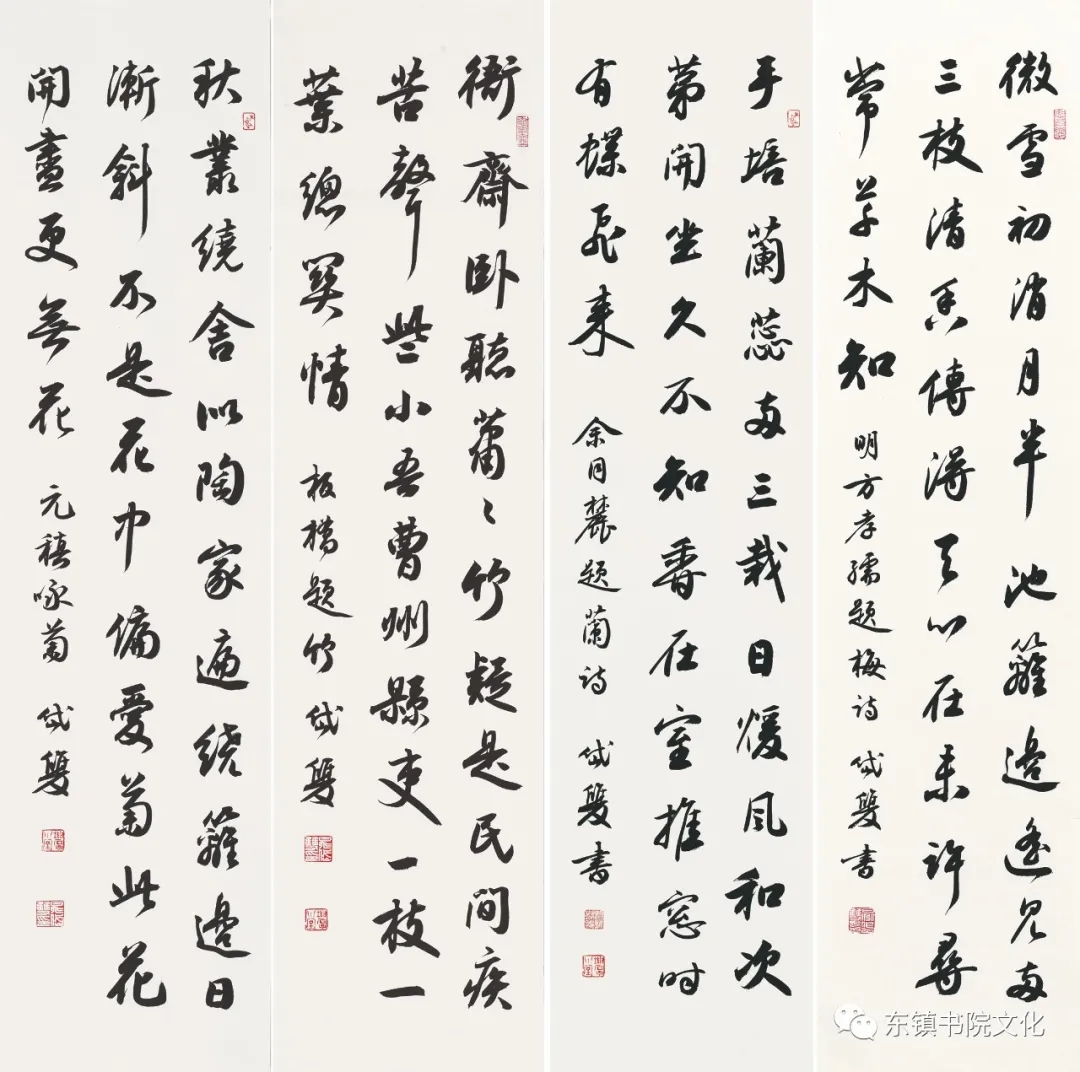 微雪初消月半池籬邊遙見兩
三枝清香傳得天心在未許尋
常草木知 明方孝孺題梅詩 岱雙書
手培蘭蕊兩三栽日暖風和次
第開坐久不知香在室推窗時
有蝶飛來 余同麓題蘭詩 岱雙書
衙齋卧聽蕭〻竹疑是民間疾
苦聲些小吾曹州縣吏一枝一
葉總關情 板橋題竹 岱雙
秋叢繞舍似陶家遍繞籬邊日
漸斜不是花中偏愛菊此花
開盡更無花 元稹咏菊 岱雙
东镇书院文化